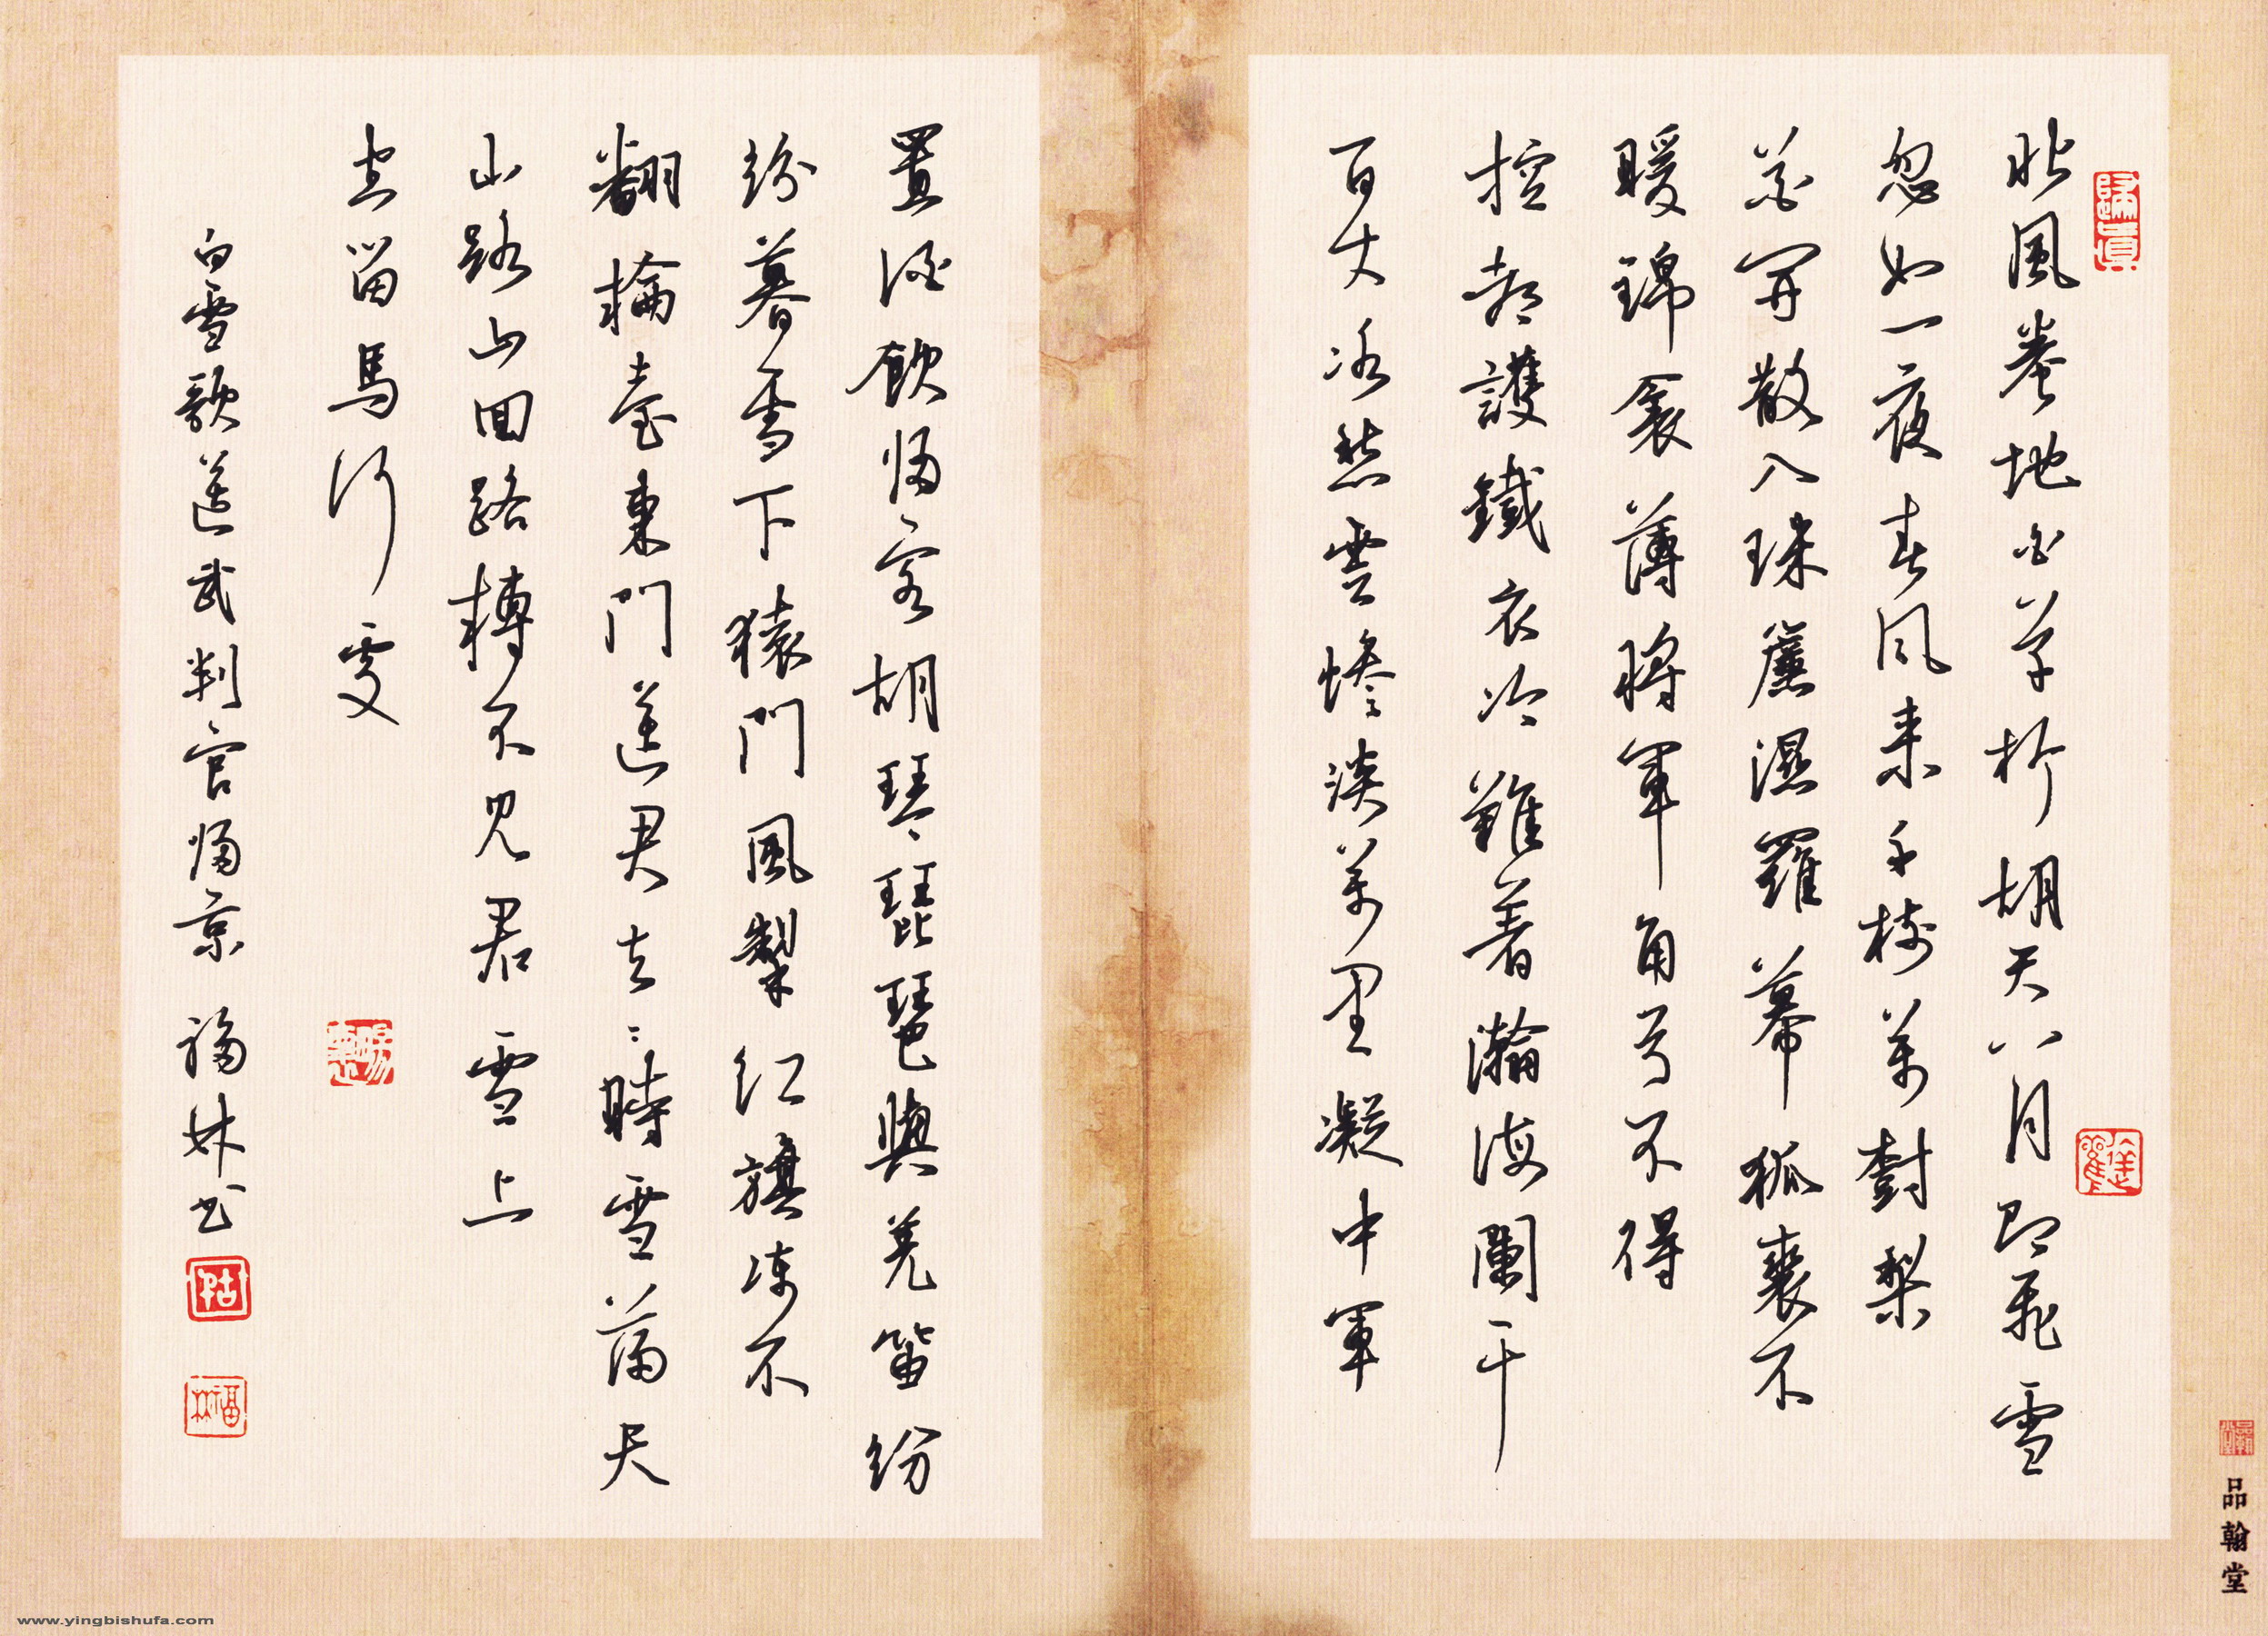 北風卷地白草折胡天八月即飛雪
忽如一夜春風来千樹萬樹梨
花開散入珠簾濕羅幕狐裘不
暖錦衾薄將軍角弓不得
控都護鐵衣冷難着瀚海闌干
百丈冰愁雲慘淡萬里凝中軍
置酒飲歸客胡琴琵琶與羌笛紛
紛暮雪下猿門風掣紅旗凍不
翻輪臺東門送君去去時雪滿天
山路山回路轉不見君雪上
空留馬行處
白雪歌送武判官歸京 福林書
歸真
福林
品翰堂
www.yingbishufa.com